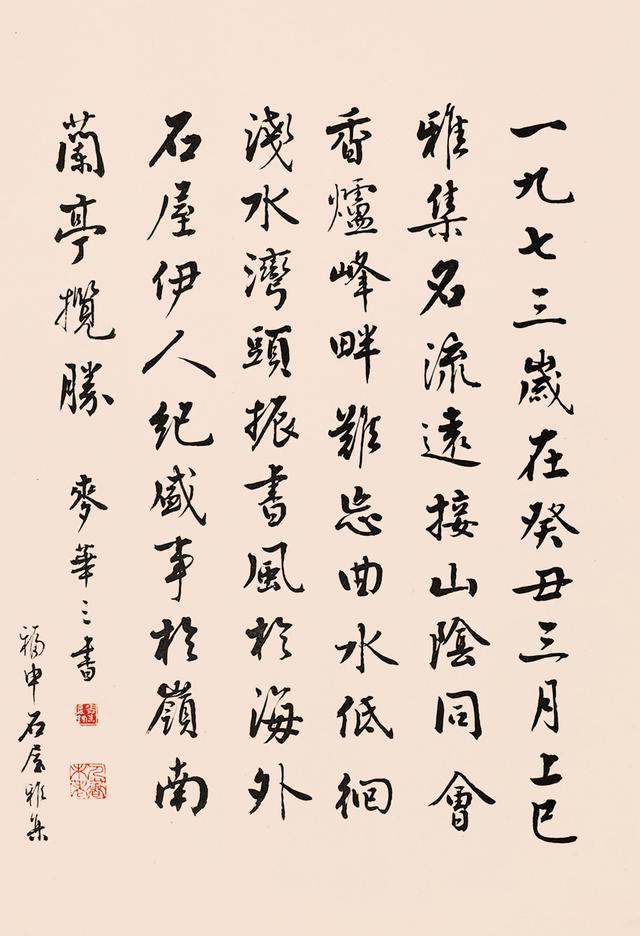 一九七三歲在癸丑三月上巳
雅集名流遠接山陰同會
香爐峰畔難忘曲水低徊
淺水灣頭振書風於海外
石屋伊人紀盛事於嶺南
蘭亭攬勝
麥華三書
福申石屋雅集